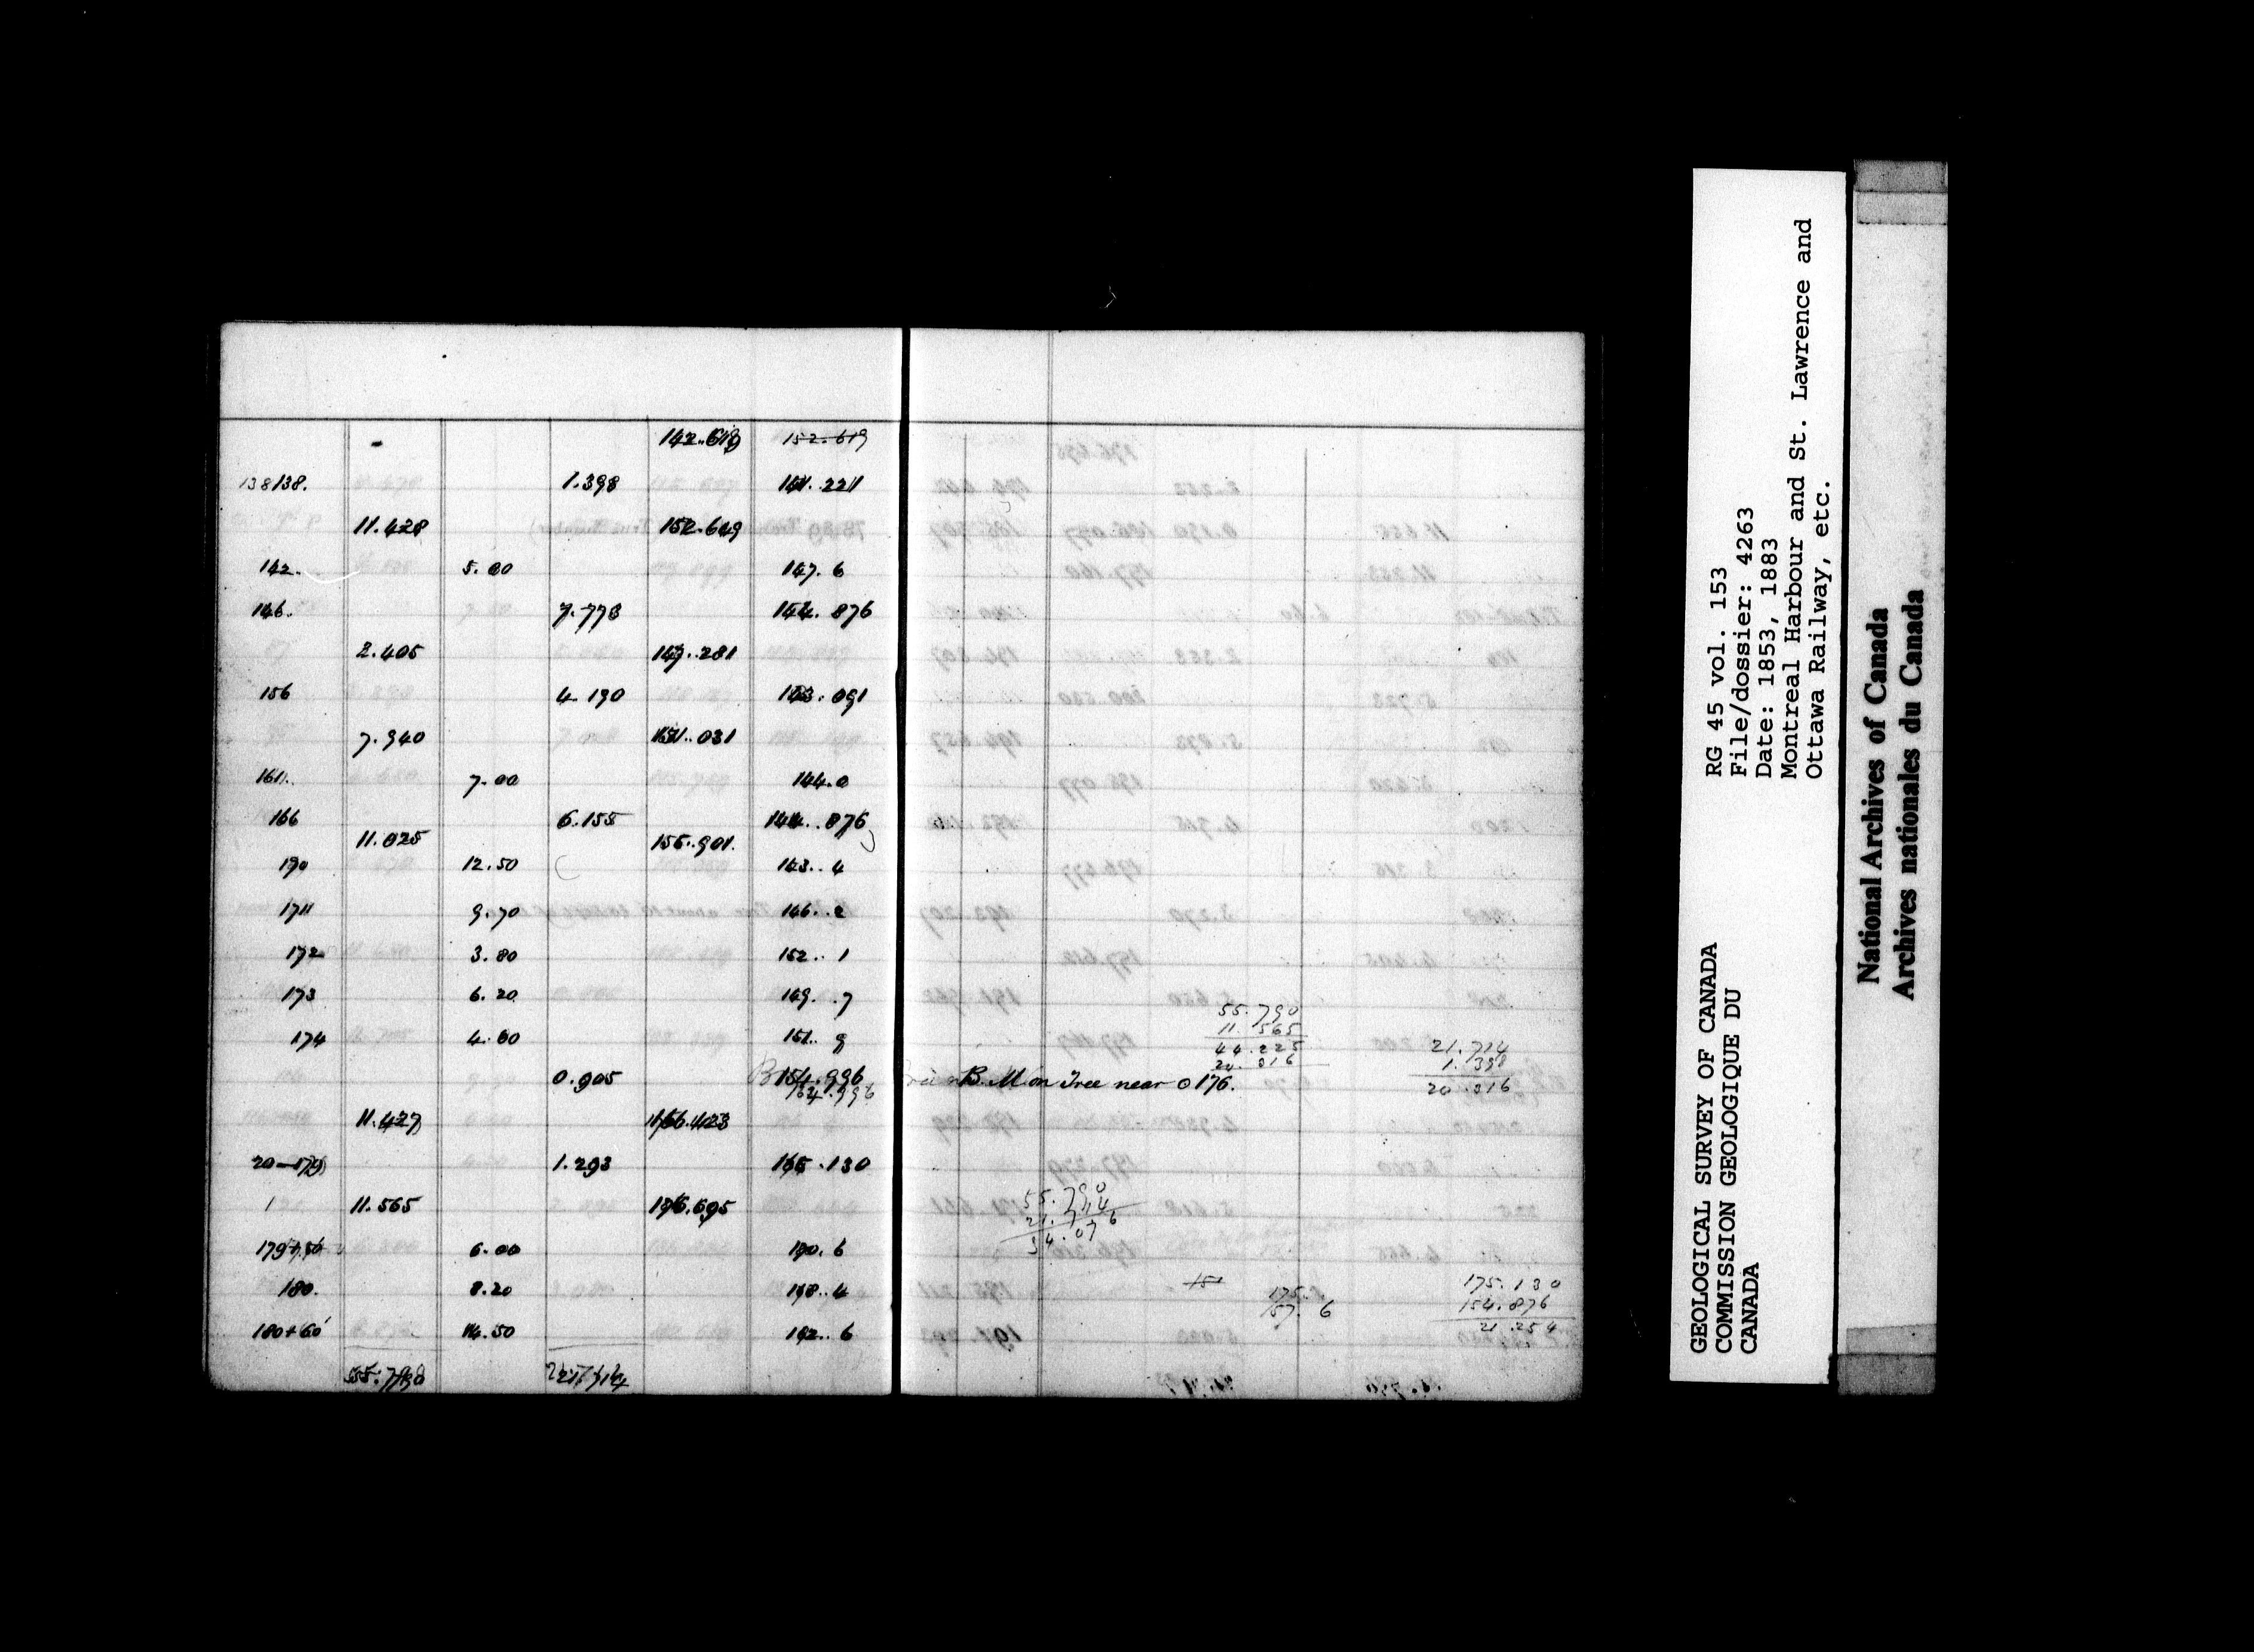 142.619 152.619
138 138. 1.398 141.221
11.428 152.649
142. 5.00 147.6
146. 7.773 144.876
2.405 147.281
156 4.190 143.091
7.940 151.031
161. 7.00 144.0
166 6.155 144.876
11.025 155.901.
170 12.50 143.4
171 9.70 146.2
172 3.80 152.1
173 6.20 149.7
174 4.00 151.9
0.905 154.996
154.996
11.427 166.423
20-179 1.293 165.130
11.565 176.695
179+50 6.00 170.6
180. 8.20 168.4
180+60' 14.50 162.6
55.790 21.714
55.790
11.565
44.225
20.316
B.M on Tree near ⊙ 176.
21.714
1.398
20.316
55.790
21.714
34.076
151
175.
157.6
175.130
154.876
21.254
GEOLOGICAL SURVEY OF CANADA
COMMISSION GEOLOGIQUE DU
CANADA
RG 45 vol. 153
File/dossier: 4263
Date: 1853, 1883
Montreal Harbour and St. Lawrence and
Ottawa Railway, etc.
National Archives of Canada
Archives nationales du Canada